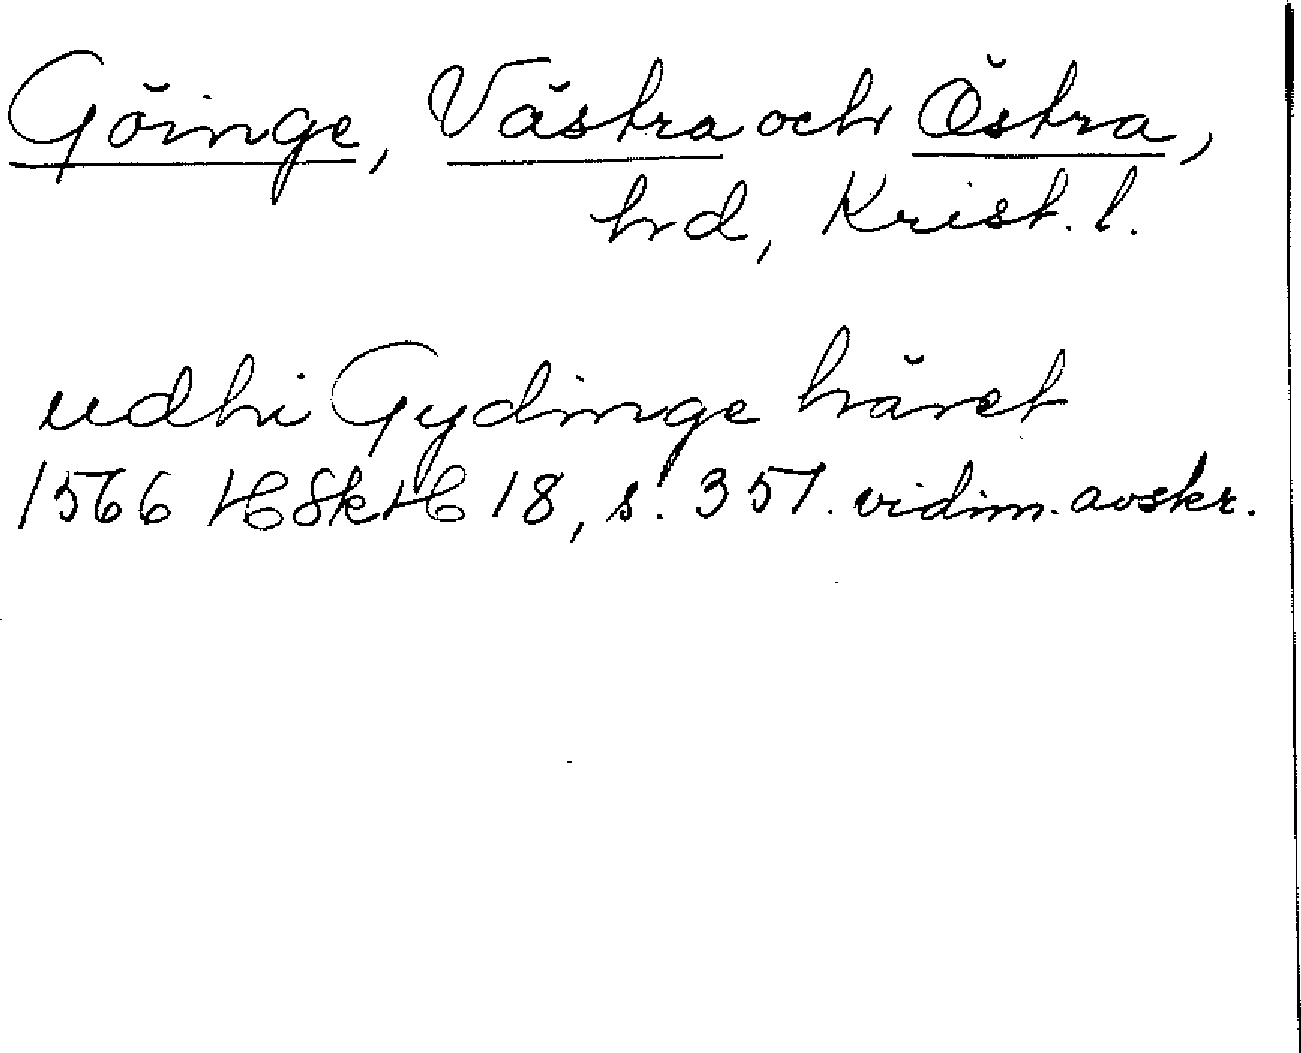 Göinge, Västra och Östra,
hd, Krist. l.
udhi Gydinge häret
1566 HSkH 18, s. 357. vidim. avskr.